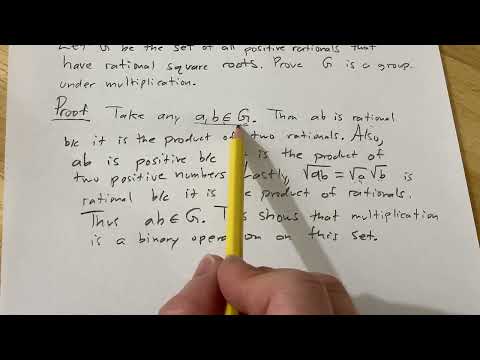 G be the set of all positive rationals that
have rational square roots. Prove G is a group
under multiplication.
Proof Take any a,b ∈ G. Then ab is rational
b/c it is the product of two rationals. Also,
ab is positive b/c is the product of
two positive numbers. Lastly, √ab = √a √b is
rational b/c it is the product of rationals.
Thus ab ∈ G. This shows that multiplication
is a binary operation on this set.